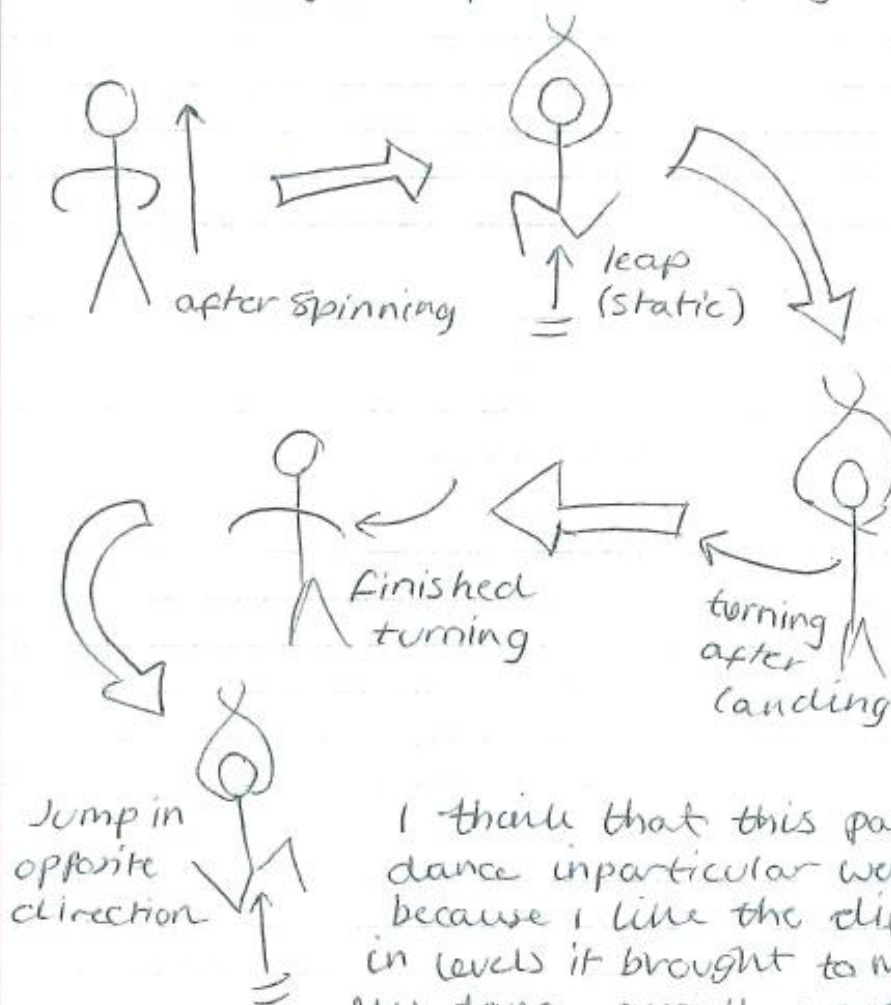 after spinning
leap
(static)
turning
after
landing
finished
turning
Jump in
opposite
direction
I think that this
dance inparticular
because I like the
in levels it brought to